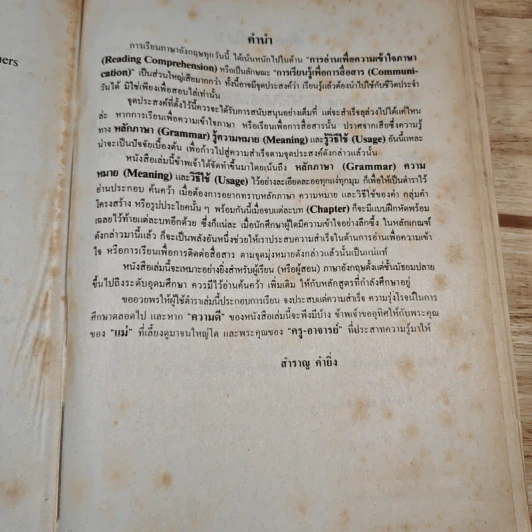 ers
คำนำ
การเรียนภาษาอังกฤษทุกวันนี้ ได้เน้นหนักไปในด้าน "การอ่านเพื่อความเข้าใจภาษา
(Reading Comprehension) หรือเป็นลักษณะ "การเรียนรู้เพื่อการสื่อสาร (Communi-
cation)" เป็นส่วนใหญ่เสียมากกว่า ทั้งนี้อาจมีจุดประสงค์ว่า เรียนรู้แล้วต้องนำไปใช้กับชีวิตประจำ
วันได้ มิใช่เพียงเพื่อสอบไล่เท่านั้น
จุดประสงค์ที่ตั้งไว้นี้ควรจะได้รับการสนับสนุนอย่างเต็มที่ แต่จะสำเร็จลุล่วงไปได้แค่ไหน
ล่ะ หากการเรียนเพื่อความเข้าใจภาษา หรือเรียนเพื่อการสื่อสารนั้น ปราศจากเสียซึ่งความรู้
ทาง หลักภาษา (Grammar) รู้ความหมาย (Meaning) และรู้วิธีใช้ (Usage) อันนี้แหละ
น่าจะเป็นปัจจัยเบื้องต้น เพื่อก้าวไปสู่ความสำเร็จตามจุดประสงค์ดังกล่าวแล้วนั้น
หนังสือเล่มนี้ข้าพเจ้าได้จัดทำขึ้นมาโดยเน้นถึง หลักภาษา (Grammar) ความ
หมาย (Meaning) และวิธีใช้ (Usage) ไว้อย่างละเอียดละออทุกแง่ทุกมุม ก็เพื่อให้เป็นตำราไว้
อ่านประกอบ ค้นคว้า เมื่อต้องการอยากทราบหลักภาษา ความหมาย และวิธีใช้ของคำ กลุ่มคำ
โครงสร้าง หรือรูปประโยคนั้น ๆ พร้อมกันนี้เมื่อจบแต่ละบท (Chapter) ก็จะมีแบบฝึกหัดพร้อม
เฉลยไว้ท้ายแต่ละบทอีกด้วย ซึ่งก็แน่ละ เมื่อนักศึกษาผู้ใดมีความเข้าใจอย่างลึกซึ้ง ในหลักเกณฑ์
ดังกล่าวมานี้แล้ว ก็จะเป็นพลังอันหนึ่งช่วยให้เราประสบความสำเร็จในด้านการอ่านเพื่อความเข้า
ใจ หรือการเรียนเพื่อการติดต่อสื่อสาร ตามจุดมุ่งหมายดังกล่าวแล้วนั้นเป็นแน่แท้
หนังสือเล่มนี้จะเหมาะอย่างยิ่งสำหรับผู้เรียน (หรือผู้สอน) ภาษาอังกฤษตั้งแต่ชั้นมัธยมปลาย
ขึ้นไปถึงระดับอุดมศึกษา ควรมีไว้อ่านค้นคว้า เพิ่มเติม ให้กับหลักสูตรที่กำลังศึกษาอยู่
ขออวยพรให้ผู้ใช้ตำราเล่มนี้ประกอบการเรียน จงประสบแต่ความสำเร็จ ความรุ่งโรจน์ในการ
ศึกษาตลอดไป และหาก "ความดี" ของหนังสือเล่มนี้จะพึงมีบ้าง ข้าพเจ้าขออุทิศให้กับพระคุณ
ของ "แม่" ที่เลี้ยงดูมาจนใหญ่โต และพระคุณของ "ครู-อาจารย์" ที่ประสาทความรู้มาให้
สำราญ คำยิ่ง